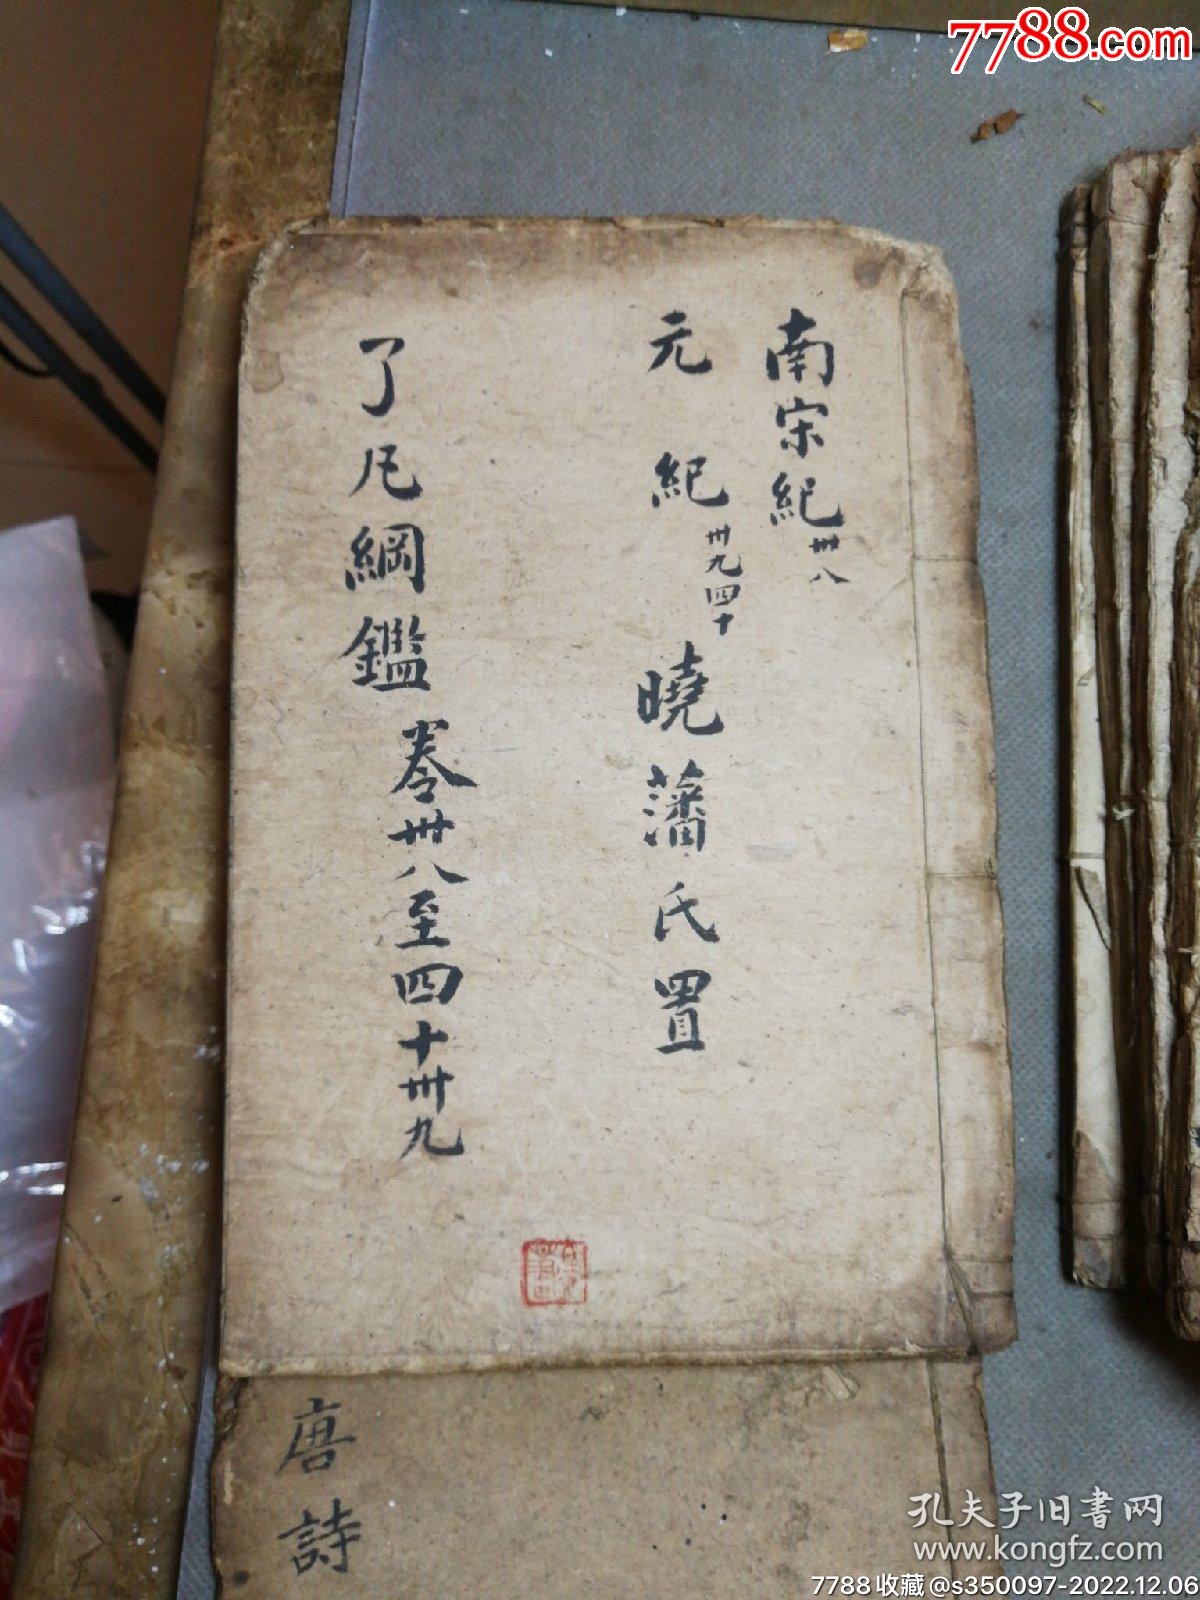 7788.com
南宋紀卅八
元紀卅九四十
曉藩氏置
了凡綱鑑卷卅八至四十卅九
唐詩
孔夫子旧书网
www.kongfz.com
7788收藏@s350097-2022.12.06